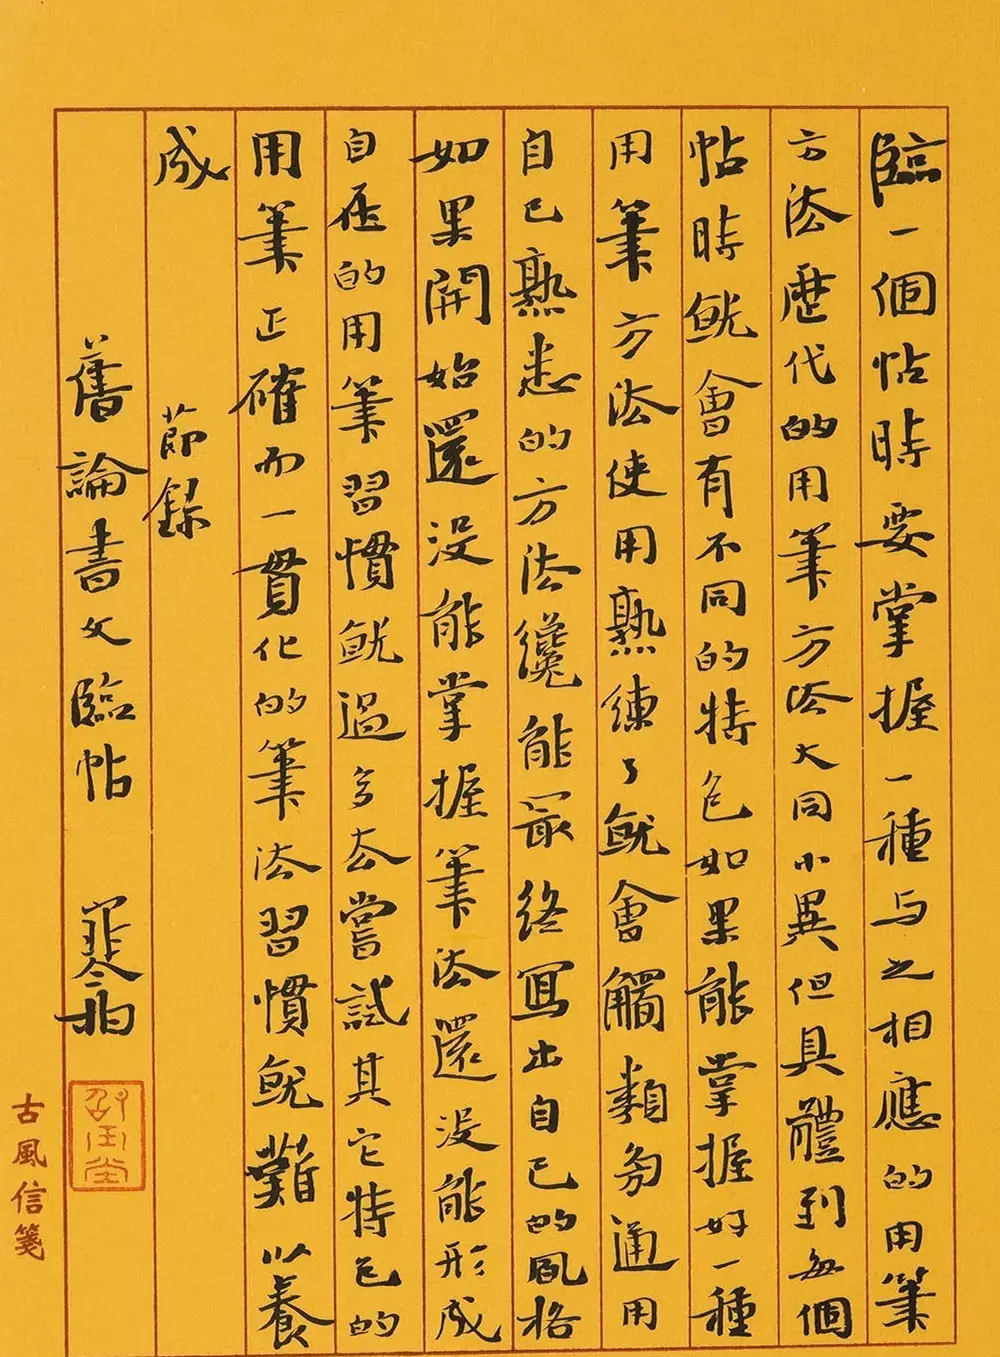 臨一個帖時要掌握一種与之相應的用筆
方法歷代的用筆方法大同小異但具體到每個
帖時就會有不同的特色如果能掌握好一種
用筆方法使用熟練了就會觸類旁通用
自己熟悉的方法纔能最終寫出自己的風格
如果開始還沒能掌握筆法還沒能形成
自在的用筆習慣就過多去嘗試其它特色的
用筆正確而一貫化的筆法習慣就難以養
成
節錄
舊論書文臨帖
古風信箋